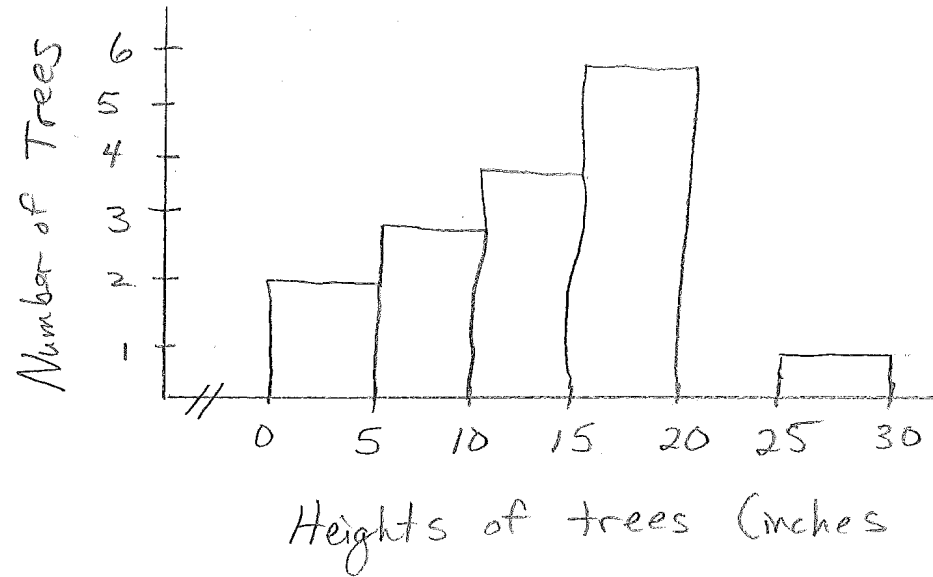 Number of Trees
6
5
4
3
2
1
0 5 10 15 20 25 30
Heights of trees (inches